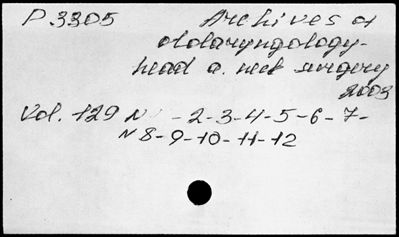 P.3305 Archives of
otolaryngology-
head a. neck surgery
2003
Vol. 129 N - 2-3-4-5-6-7-
N 8-9-10-11-12